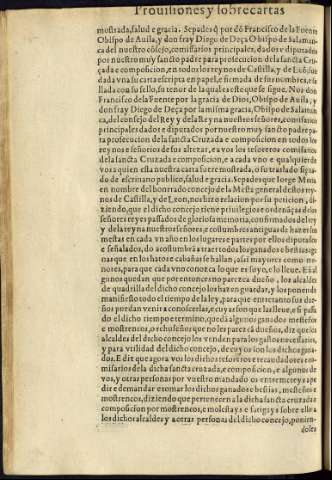 Prouisiones y sobrecartas
mostrada, salud e gracia. Sepades q̃ por dõ Francisco de la Fuente
Obispo de Auila, y don fray Diego de Deça Obispo de Salaman-
ca del nuestro cõsejo, comissarios principales, dados e diputados
por nuestro muy sancto padre para prosecucion de la sancta Cru-
çada e composicion, en todos los reynos de Castilla, y de Leõ, fue
dada vna su carta escripta en papel, e firmada de sus nombres, e se-
llada con su sello, su tenor de la qual es este que se sigue. Nos don
Francisco de la Fuente por la gracia de Dios, Obispo de Auila, y
don fray Diego de Deça por la misma gracia, Obispo de Salaman
ca, del consejo del Rey y de la Reyna nuestros señores, comissarios
principales dados e diputados por nuestro muy sancto padre pa-
ra prosecucion de la sancta Cruzada e composicion en todos los
reynos e señorios de sus altezas, a vos los tesoreros comissarios
de la sancta Cruzada e composicion, e a cada vno e qualquier de
vos a quien esta nuestra carta fuere mostrada, o su traslado signa-
do de escriuano publico, salud e gracia. Sepades que Jorge Mexia
en nombre del honrrado concejo de la Mesta general destos rey-
nos de Castilla, y de Leon, nos hizo relacion por su peticion, di-
ziendo, que el dicho concejo tiene priuilegios e ordenãças de los
señores reyes passados de gloriosa memoria, confirmados del rey
y de la reyna nuestros señores, e costumbres antiguas de hazer sus
mestas en cada vn año en los lugares e partes por ellos diputados
e señalados, do acostumbrã a traer todos los ganados e bestias agi-
nas que en los hatos e cabañas se hallan, assi mayores como me-
nores, para que cada vno conozca lo que es suyo, e lo lleue. E si al
gunos quedan que por entonces no parezca dueño, los alcaldes
de quadrilla del dicho concejo los hazen guardar, y los ponen de
manifiesto todo el tiempo de la ley, para que entre tanto sus due-
ños puedan venir a conoscerlas, e si y a son que las lleue, e si passa-
do el dicho tiempo e termino, quedã algunos ganados mesteños
e mostrencos, o reusueños que no les parezca dueños, diz que los
alcaldes del dicho concejo los venden para gastos necessarios,
y para vtilidad del dicho concejo, de cuyos son los dichos gana-
dos. E diz que agora vos los dichos tesoreros e recaudadores e co-
missarios de la dicha sancta cruzada, e composicion, e algunos de
vos, y otras personas por vuestro mandado os entremeteys a pe-
dir e demandar e tomar los dichos ganados e bestias, mesteños e
mostrencos, diziendo que pertenecen a la dicha sancta cruzada e
composicion por mostrencos, e molestays e fatigays sobre ello a
los dichos alcaldes y a otras personas del dicho concejo, ponien-
doles